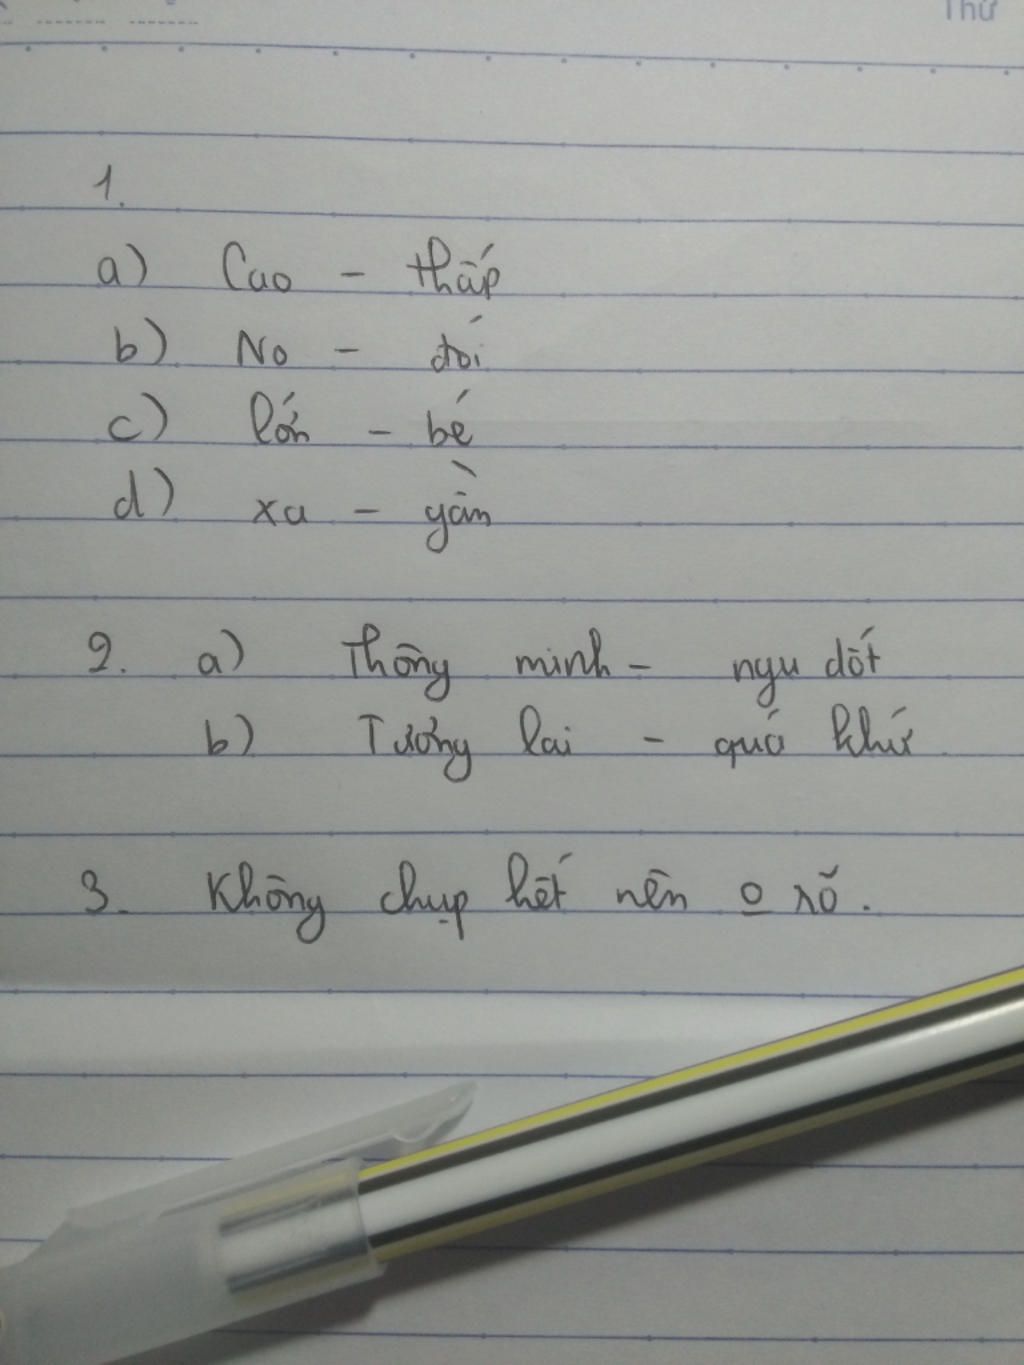 Thứ
1.
a) Cao - thấp
b) No - đói
c) lớn - bé
d) xa - gần
2. a) Thông minh - ngu dốt
b) Tương lai - quá khứ
3. Không chụp hết nên o rõ.